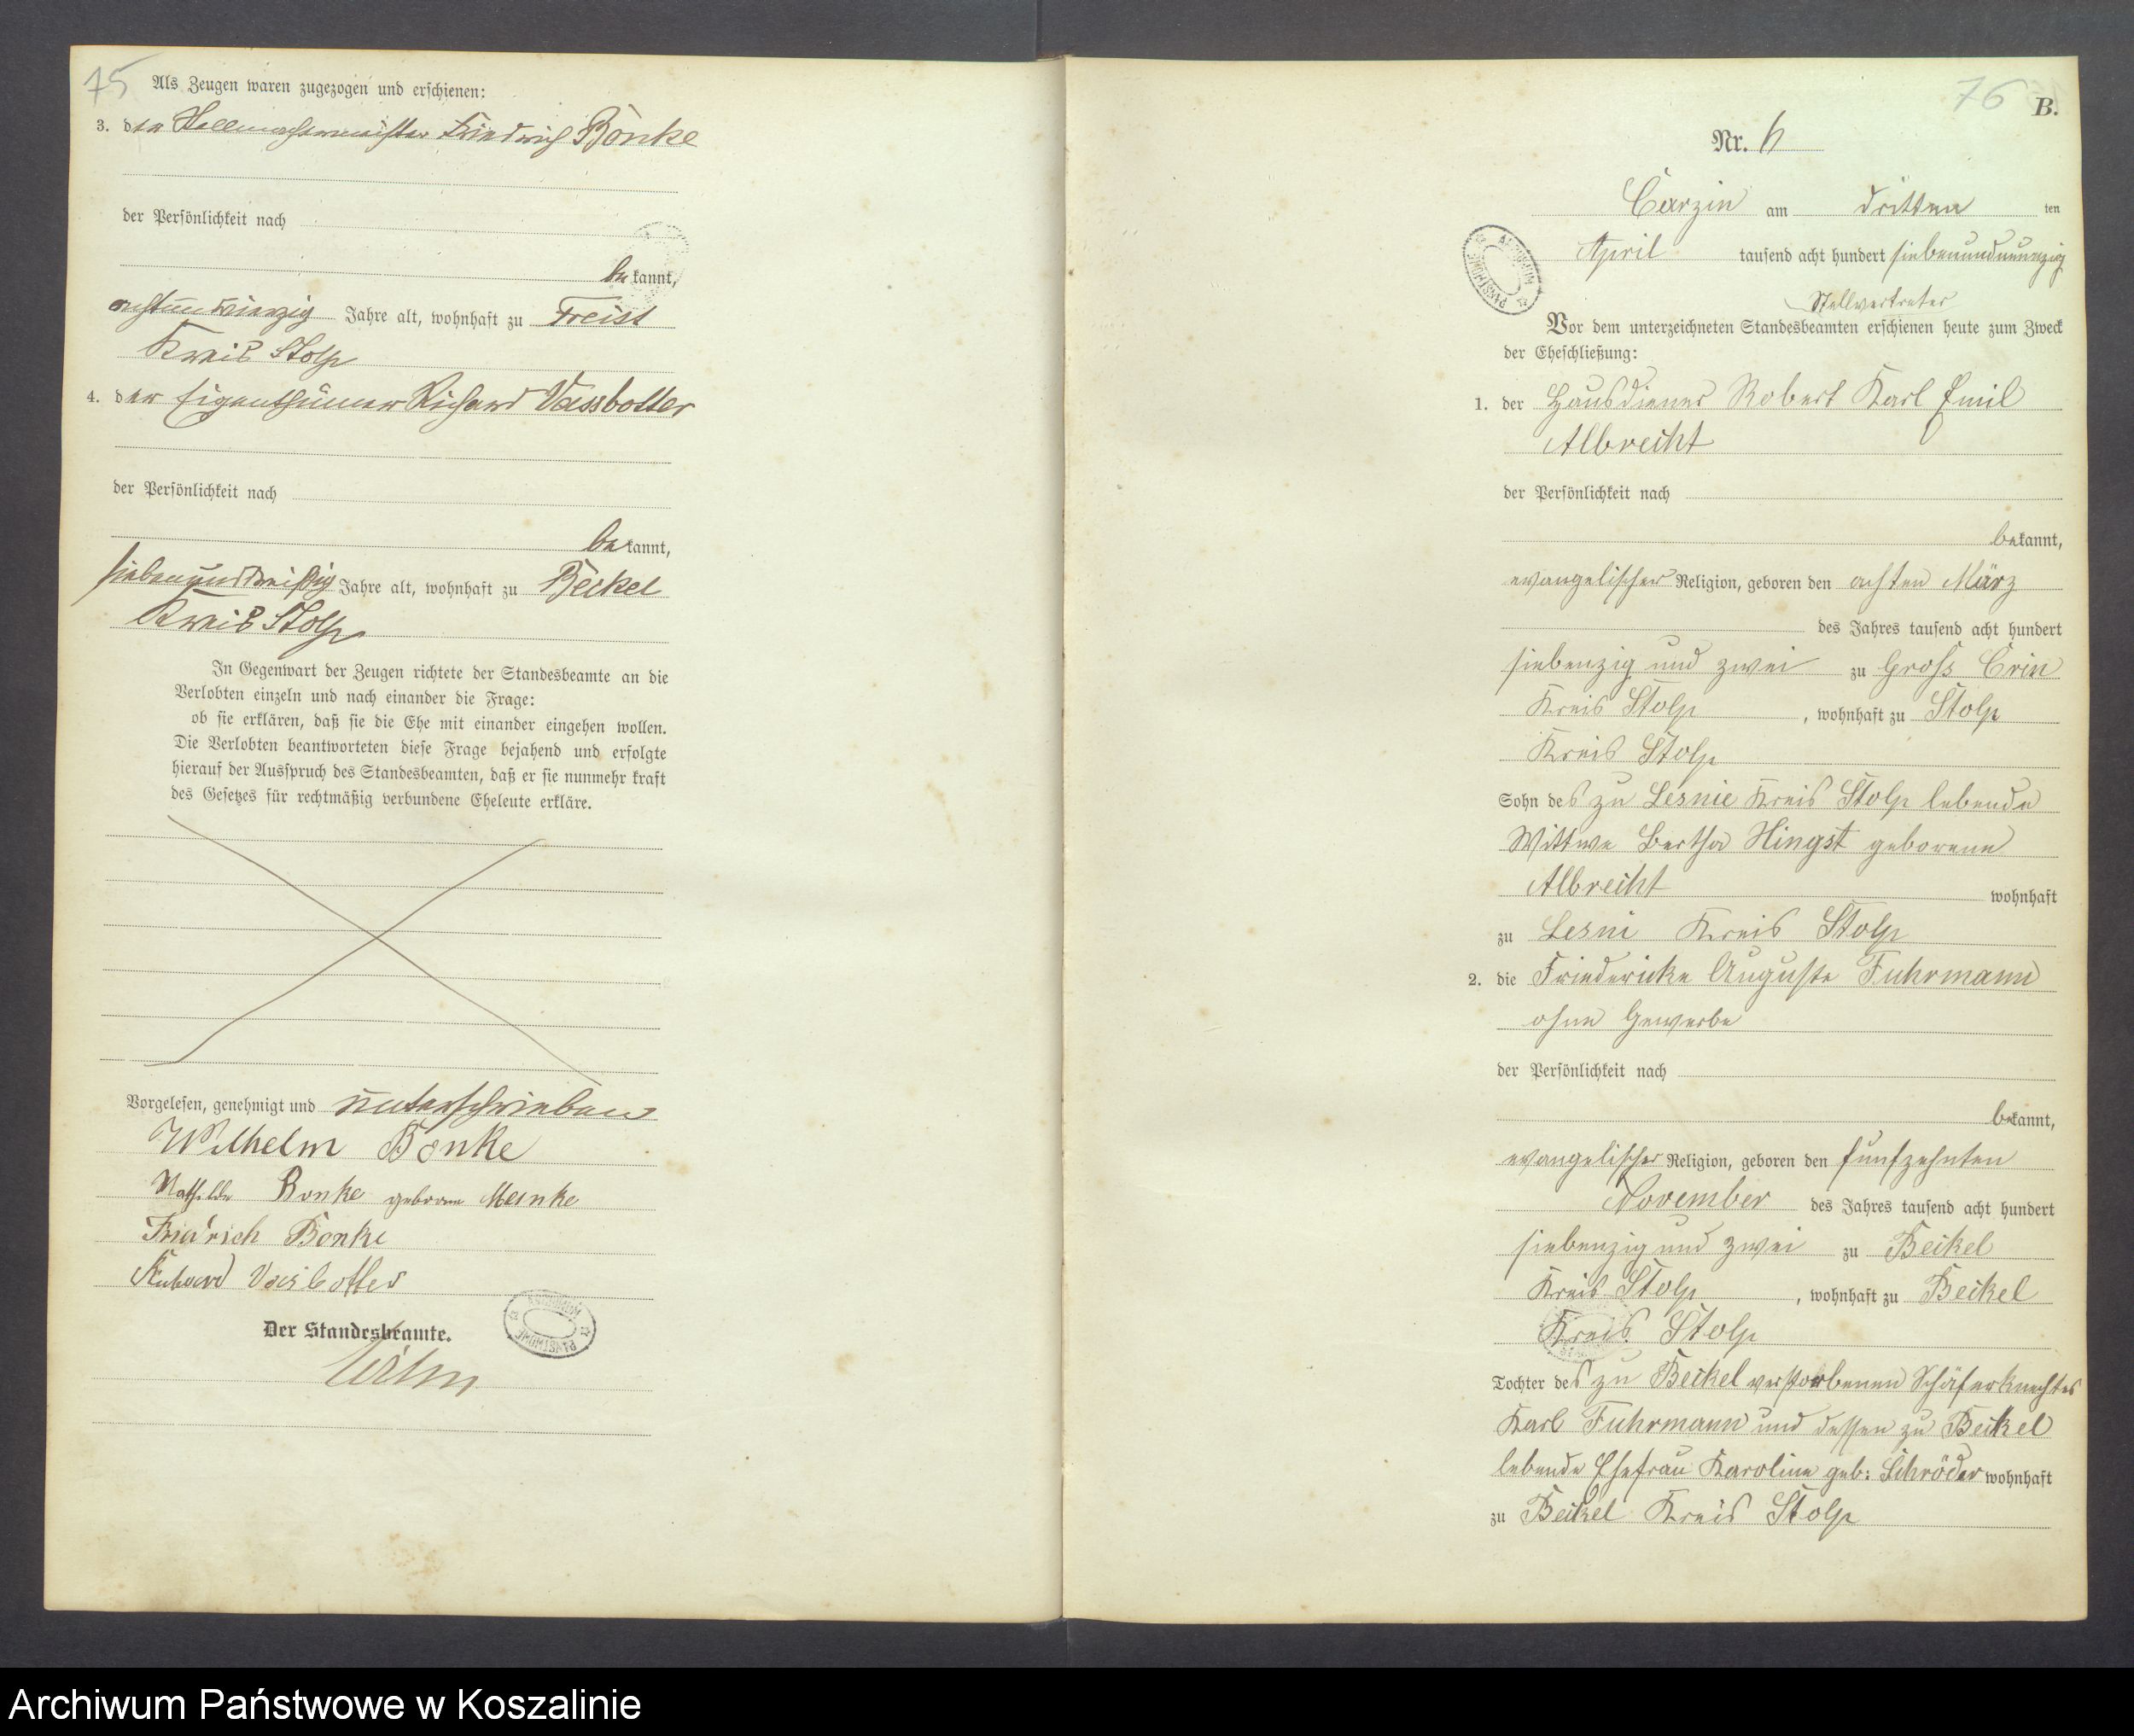 75
Als Zeugen waren zugezogen und erschienen:
3. der Stellmachermeister Friedrich Bonke
der Persönlichkeit nach
bekannt,
achtundvierzig Jahre alt, wohnhaft zu Freist
Kreis Stolp
4. der Eigenthümer Richard Vassbotter
der Persönlichkeit nach
bekannt,
siebenunddreißig Jahre alt, wohnhaft zu Beckel
Kreis Stolp
In Gegenwart der Zeugen richtete der Standesbeamte an die
Verlobten einzeln und nach einander die Frage:
ob sie erklären, daß sie die Ehe mit einander eingehen wollen.
Die Verlobten beantworteten diese Frage bejahend und erfolgte
hierauf der Ausspruch des Standesbeamten, daß er sie nunmehr kraft
des Gesetzes für rechtmäßig verbundene Eheleute erkläre.
Vorgelesen, genehmigt und unterschrieben
Wilhelm Bonke
Mathilde Bonke geborene Meinke
Friedrich Bonke
Richard Vassbotter
Der Standesbeamte.
76
B.
Nr. 6
Carzin am dritten ten
April tausend acht hundert siebenundneunzig
Stellvertreter
Vor dem unterzeichneten Standesbeamten erschienen heute zum Zweck
der Eheschließung:
1. der Hausdiener Robert Karl Emil
Albrecht
der Persönlichkeit nach
bekannt,
evangelischer Religion, geboren den achten März
des Jahres tausend acht hundert
siebenzig und zwei zu Gross Crin
Kreis Stolp, wohnhaft zu Stolp
Kreis Stolp
Sohn des zu Lesnie Kreis Stolp lebende
Wittwe Bertha Hingst geborene
Albrecht wohnhaft
zu Lesni Kreis Stolp
2. die Friedericke Auguste Fuhrmann
ohne Gewerbe
der Persönlichkeit nach
bekannt,
evangelischer Religion, geboren den fünfzehnten
November des Jahres tausend acht hundert
siebenzig und zwei zu Beckel
Kreis Stolp, wohnhaft zu Beckel
Kreis Stolp
Tochter des zu Beckel verstorbenen Schäferknechtes
Karl Fuhrmann und dessen zu Beckel
lebende Ehefrau Karoline geb: Schröder wohnhaft
zu Beckel Kreis Stolp
Archiwum Państwowe w Koszalinie